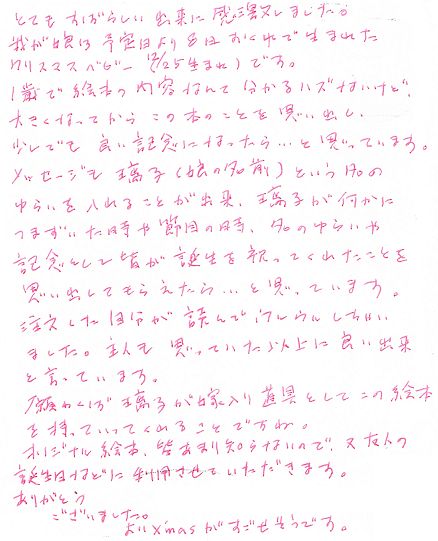 とてもすばらしい出来に感激しました。
我が娘は予定日より8日おくれで生まれた
クリスマスベビー(12/25生まれ)です。
1歳で絵本の内容なんて分かるハズないけど、
大きくなってからこの本のことを思い出し、
少しでも良い記念になったら…と思っています。
メッセージも璃子(娘の名前)という名の
ゆらいを入れることが出来、璃子が何かに
つまずいた時や節目の時、名のゆらいや
記念として皆が誕生を祝ってくれたことを
思い出してもらえたら…と思っています。
注文した自分が読んでウルウルしちゃい
ました。主人も思っていた以上に良い出来
と言っています。
願わくば璃子が嫁入り道具としてこの絵本
を持っていってくれることですね。
オリジナル絵本、皆あまり知らないので、又友人の
誕生日などに利用させていただきます。
ありがとう
ございました。
よいXmasがすごせそうです。